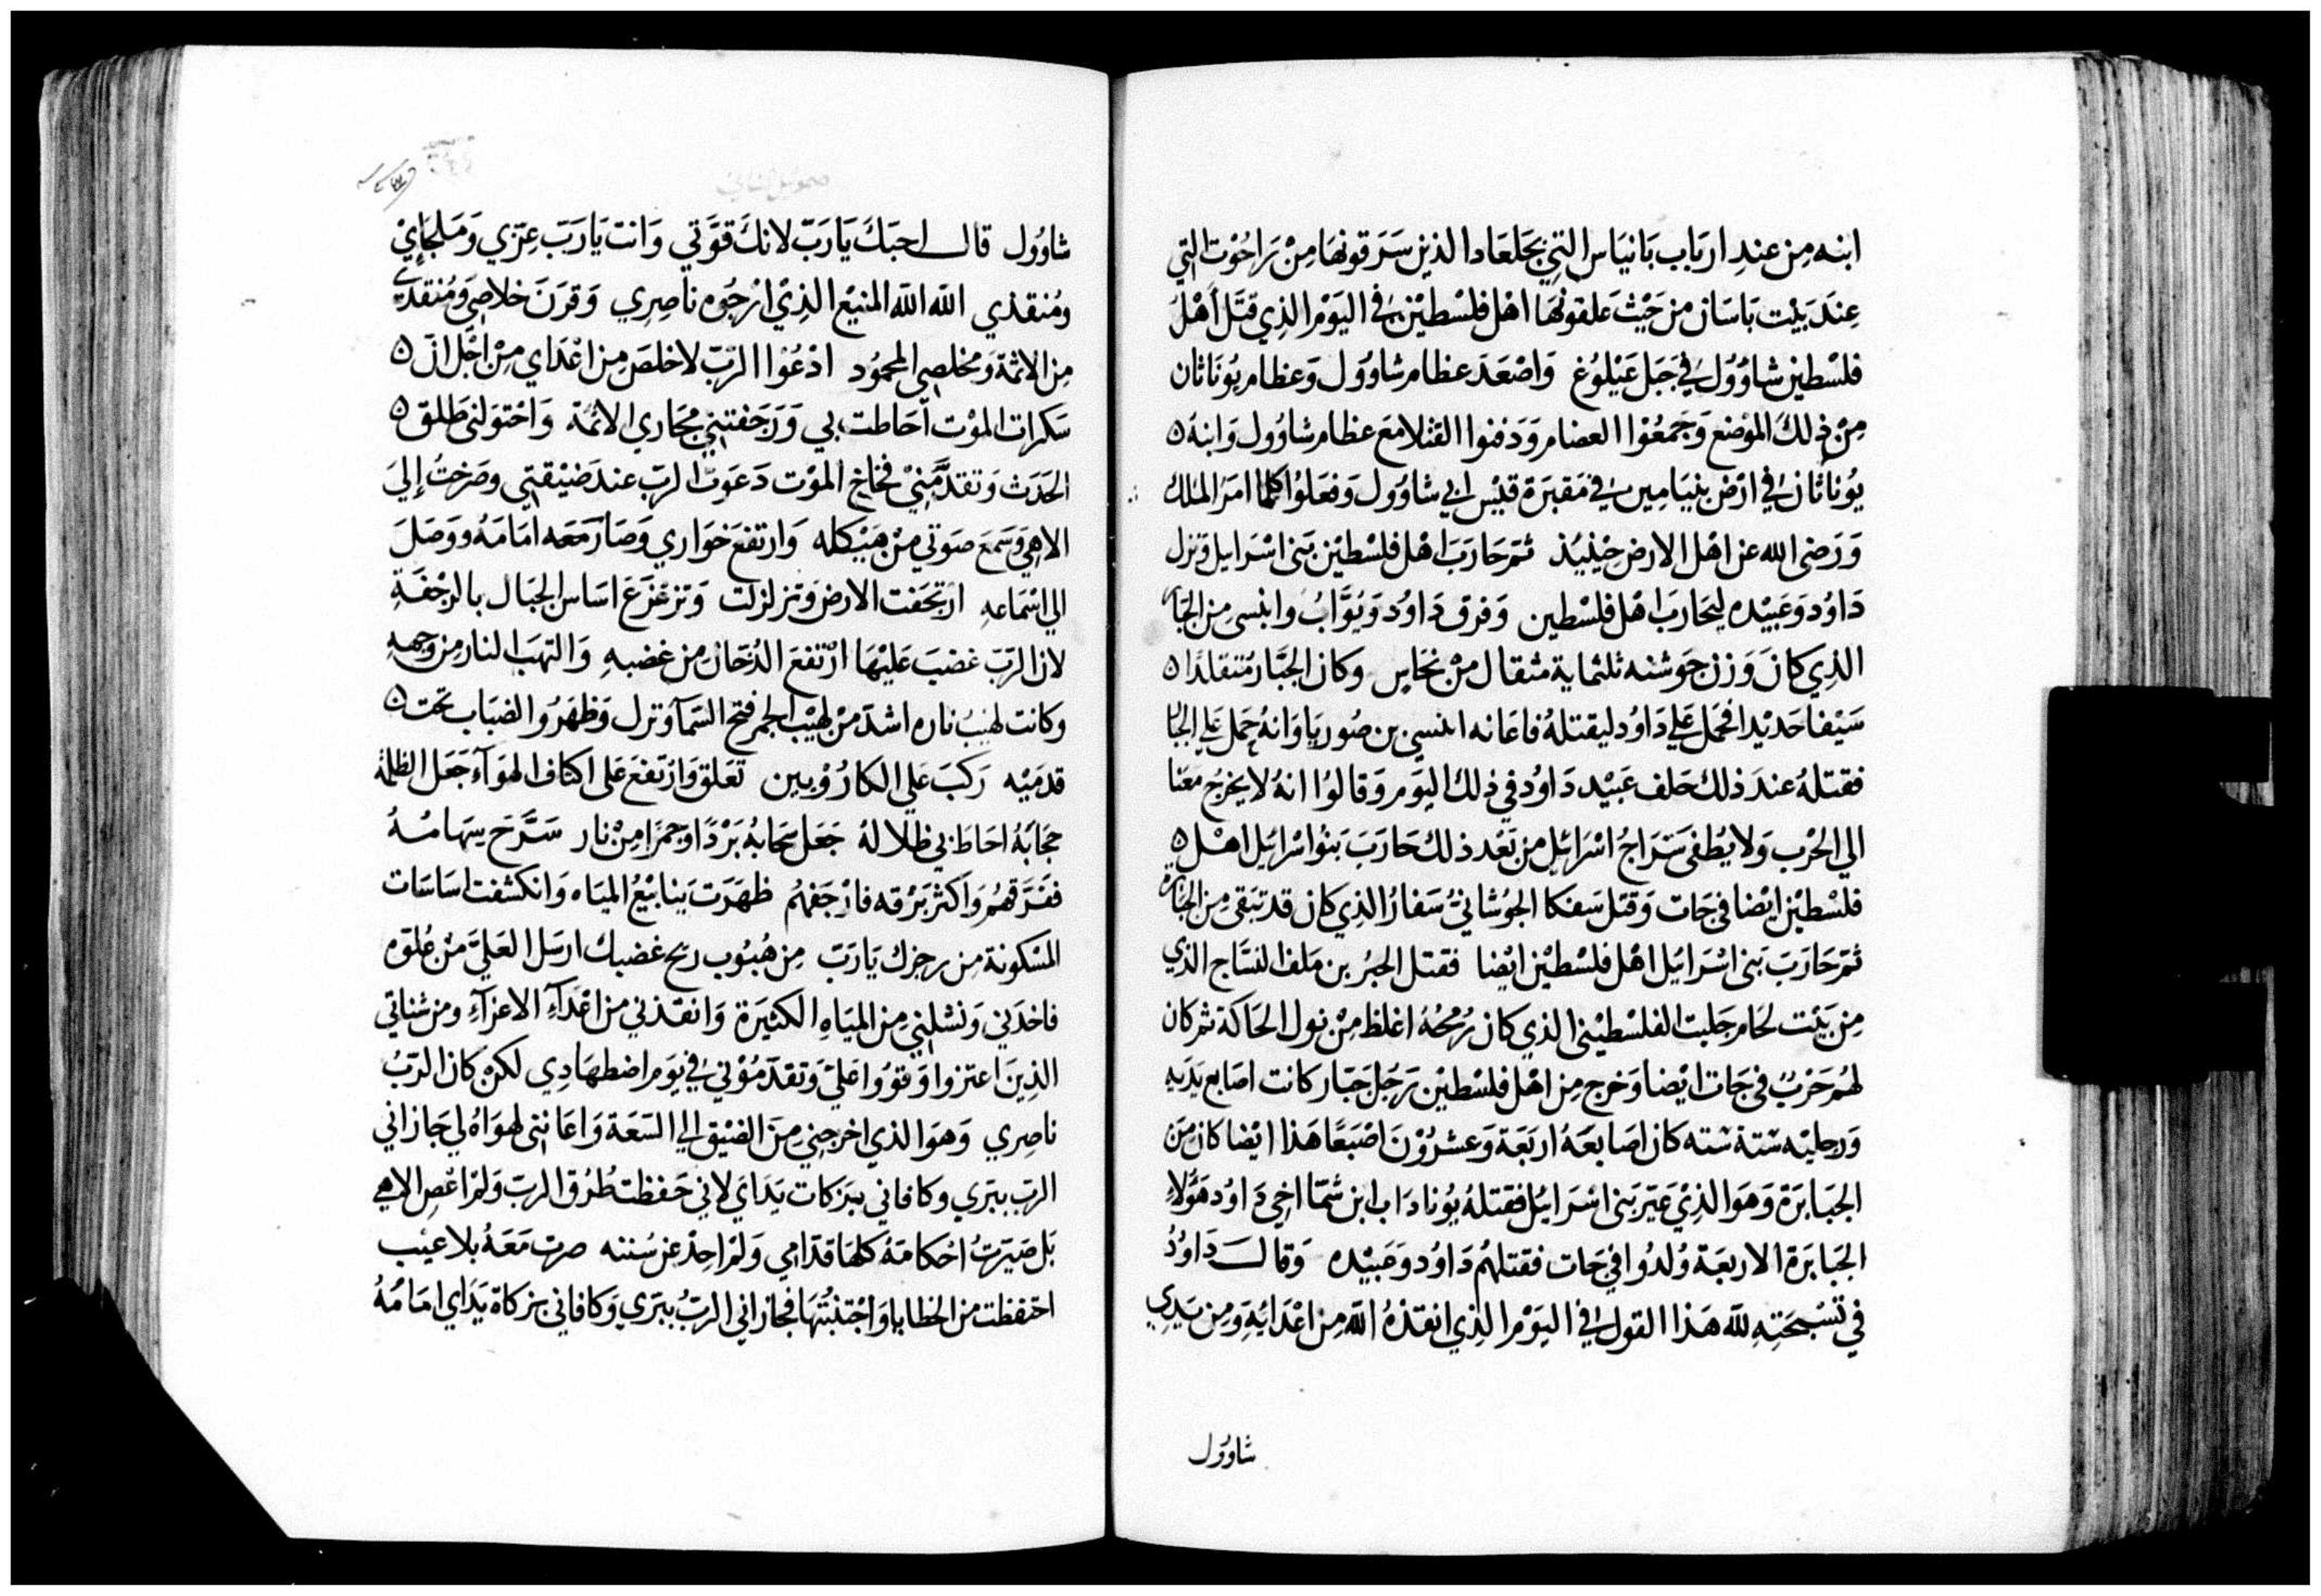 ابنه مِن عندِ ارباب بَانيَاس التي بجلعاد الذين سَرَقونهَا مِنْ رَاحُوْت التي
عِندَ بَيْت بَاسَان من حَيْث عَلقونهَا اهْل فلسْطيْن في اليَوْم الذِي قتَل أهْلُ
فلسْطين شاوُول في جَبَل عَيْلوُغ وَاصْعَدَ عظام شاوُول وَعظام يوُنَاثان
مِنْ ذلكَ الموْضع وَجَمعُوْا العضام وَدَفنوا القتْلا مَعَ عظام شاوُول وَابنهُ ٥
يوُناثان في ارْض بنيَامِين في مَقبَرَة قيْس ابي شاوُول وَفعَلوُا كلما امَرَ الملك
وَرَضى الله عن اهْل الارض حِيْنيُذ ثمّ حَارَبَ اهْل فلسْطيْن بَنى اسْرَايل وَنزل
دَاوُد وَعَبيْده ليحَاربَ اهْل فلسْطين وَفرق دَاوُد وَيوُآبُ وابنسى مِن الجَبَا
الذِي كانَ وَزن جَوشنه ثلثماية مثقال مِنْ نحَاس وكان الجبَّار مُتنقلدًا ٥
سَيْفا حَديْدا فحَمل عَلي دَاوُد ليقتلهُ فاعَانه ابنسى بن صُوريَا وَانهُ حمَل عَلى الجبَا
فقتلهُ عندَ ذلك حَلف عَبيْد دَاوُد في ذلك اليَوم وَقالوُا انهُ لا يخرجُ مَعَنا
الي الحْرب وَلا يُطفى سَرَاجُ اسْرَائيل من بَعْد ذلك حَارَبَ بَنوُا اسْرَائيل اهْل ٥
فلسْطيْن ايْضا في جَات وَقتل سَفكا الجوُشاني سَفارُ الذِي كان قد تبَقى مِن الجَبَابرَة
ثمّ حَارَبَ بَنى اسْرَائيل اهْل فلسْطيْن ايْضا فقتل الجبُر بن مَلف النسَّاج الذي
مِن بَيْت لحَام جَليت الفلسْطيْنى الذي كان رُمحُهُ اغلظ مِنْ نول الحَاكة ثم كان
لهُم حَرْبٌ في جَات ايْضا وَخرج مِن اهْل فلسْطيْن رَجُل جَبّار كانت اصَابع يَدَيهِ
وَرجليْه سَتة سَته كان اصَابعَهُ اربَعَة وَعشرُوْنَ اصْبَعًا هَذا ايْضا كان مِنَ
الجبَابرَة وَهوَ الذِيْ عَيّرَ بَنى اسْرَايُل فقتلهُ يوُنادَاب ابن شمّا اخي دَاوُد هَؤلاءِ
الجبَابَرَة الاربعَة وُلدُوا في جَات فقتلهُم دَاوُد وَعَبيْده وَقالَ دَاوُدُ
في تسْبحَتِهِ للّه هَذا القول في اليَوْم الذِي انقذهُ الله مِن اعْدَائِهِ وَمِن يَدِي
شاوُول
شاوُول قال احبّكَ يَا رَبّ لانكَ قوَّتي وَانت يَا رَبّ عِزّي وَمَلجَاِيْ
ومُنقذي الله الله المنيْع الذِيْ ارْجُوه ناصِري وَقرَنَ خلاصِي وَمُنقذي
مِن الاثمَة وَمخلصِي المحموُد ادْعُوْا الرَبّ لاخلصَ مِن اعْدَاي مِنْ اجْل انّ ٥
سَكرات الموْت احَاطت بي وَرَجَفتنِي مجَاري الاثمَة وَاحْتوَلنى طلق ٥
الحَدَث وَتقدَّمَنِيْ فخاخ الموْت دَعَوتُ الرَبّ عندَ ضيْقتِي وصَرَختُ إليَ
الاهي وَسَمعَ صَوتي مِنْ هَيْكله وَارتفعَ خوَاري وَصَار مَعَه امَامَهُ وَوصَلَ
الي اسْمَاعهِ ارتجَفت الارض وَتزلزلت وَتزعْزَعَ اسَاس الجبَال بالرَجْفةِ
لان الرَبّ غضبَ عَليْهَا ارْتفعَ الدُخان مِن غضبهِ وَالتهَبَ النار مِن وجههِ
وكانت لهيْبُ ناره اشدّ مِنْ لهيْب الجمر فتح السَمآ وَنزل وَظهَرُوا لضبَاب تحت ٥
قدمَيْه رَكبَ عَلي الكارُوْبيين تعَلق وَارتفعَ عَلى اكتاف الهوَآء جَعَل الظلمة
حجَابَهُ احَاطَ بي ظلاله جَعَل سَحَابهُ بَرْدًا وَجمرًا مِنْ نار سَرَّحَ سِهَامُهُ
ففرَّقهُم وَاكثر بَرْقه فارْجَفهُم ظهَرَت يَنابيْعُ الميَاه وَانكشفت اسَاسَات
المسْكونة مِن رجزك يَا رَبّ مِن هُبُوب ريح غضبك ارسَل العَليّ مِنْ عُلوّه
فاخذَني وَنشلنِي مِن الميَاهِ الكثيَرة وَانقذني من اعْدَآءِ الاعزآءِ ومن شناتي
الذِينَ اعتزوا وَقوُوا عَليّ وَتقدّموُني في يَوم اضطهَادِي لكنْ كان الرَّبُ
ناصِري وَهوَ الذي اخرجني مِنَ الضيْق الي السَعَة وَاعَانني لهوَاهُ لي جَازاني
الربّ ببرّي وكافاني ببَركات يَدَايَ لاني حَفظت طُرُق الربّ وَلم اعْصِ الاهي
بَل صَيّرتُ احْكامَهُ كلهَا قدّامِي وَلم احِدْ عن سُننه صرت مَعَهُ بلا عيْب
احتفظت من الخطايا وَاجْتنبْتُهَا فجازاني الربُّ ببرّي وَكافاني بزكاة يَدَاي امَامُهُ